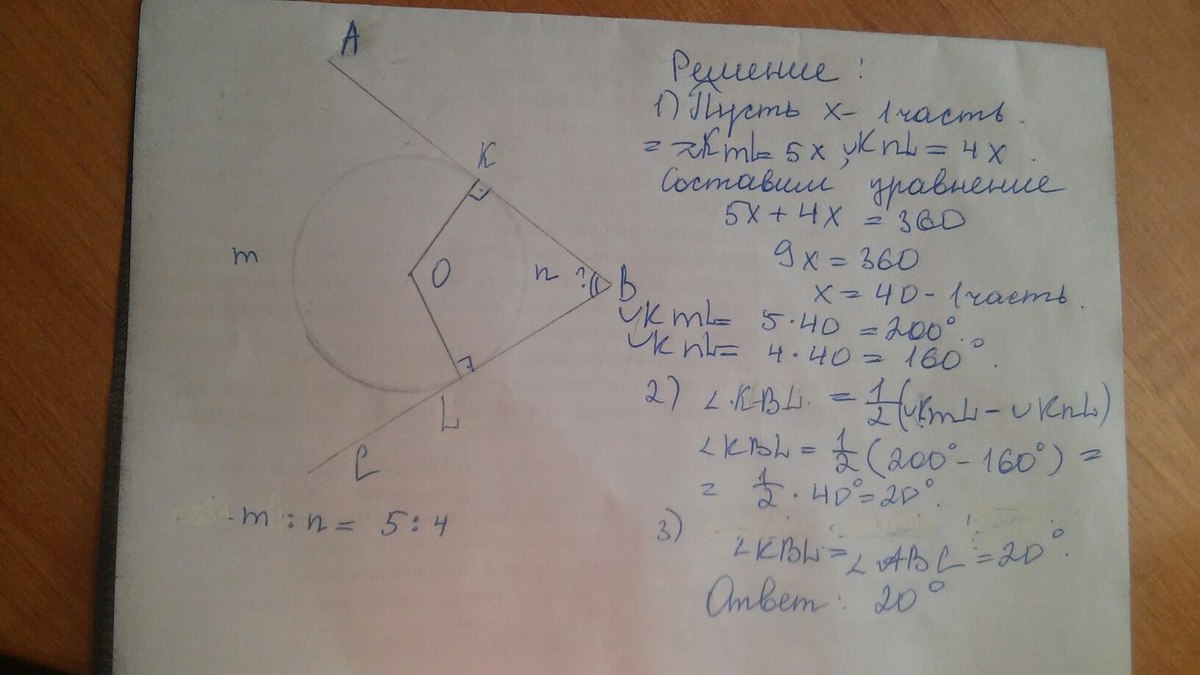 A
K
m
O
n
?
B
L
C
m : n = 5 : 4
Решение :
1) Пусть x - 1 часть.
= ◡KmL = 5x, ◡KnL = 4x.
Составим уравнение
5x + 4x = 360
9x = 360
x = 40 - 1 часть.
◡KmL = 5·40 = 200°.
◡KnL = 4·40 = 160°.
2) ∠KBL = 1/2 (◡KmL - ◡KnL)
∠KBL = 1/2 (200° - 160°) =
= 1/2 · 40° = 20°.
3)
∠KBL = ∠ABC = 20°.
Ответ : 20°